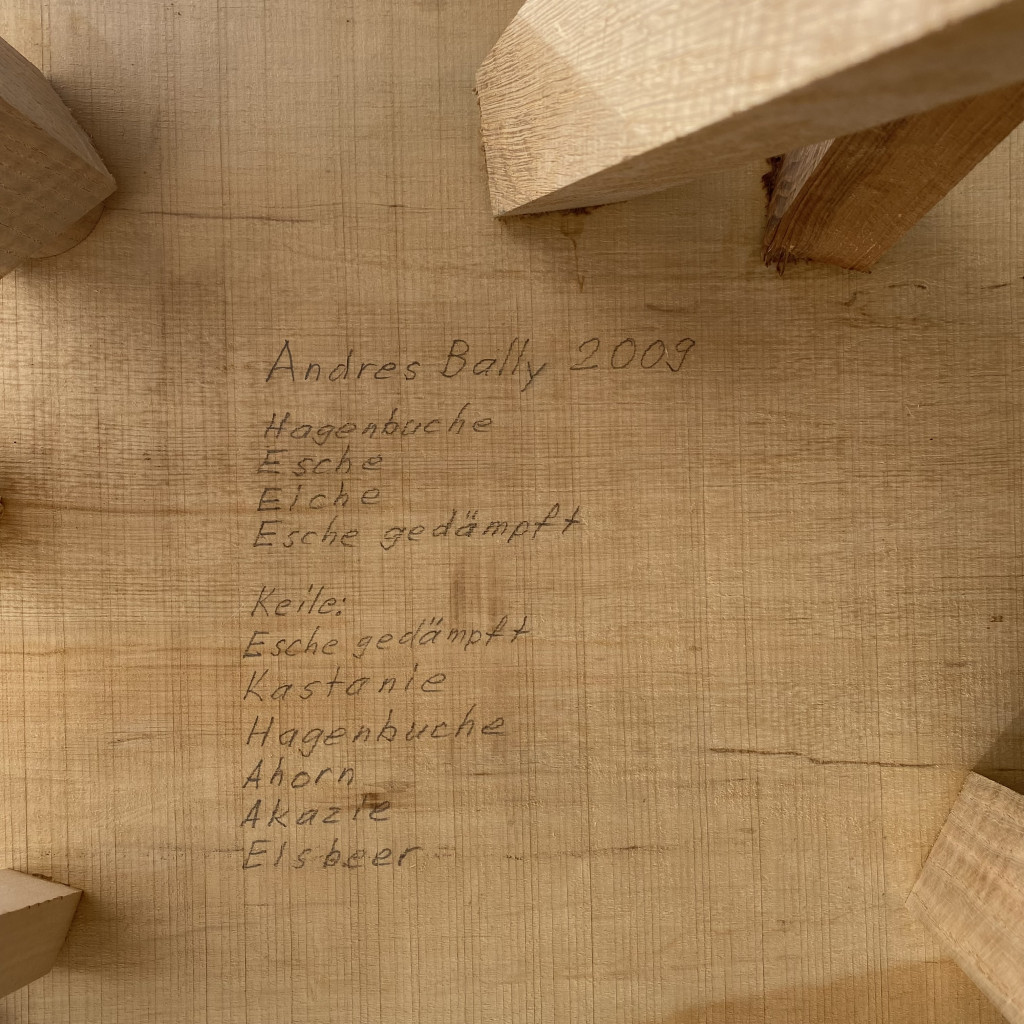 Andres Bally 2009
Hagenbuche
Esche
Eiche
Esche gedämpft
Keile:
Esche gedämpft
Kastanie
Hagenbuche
Ahorn
Akazie
Elsbeer